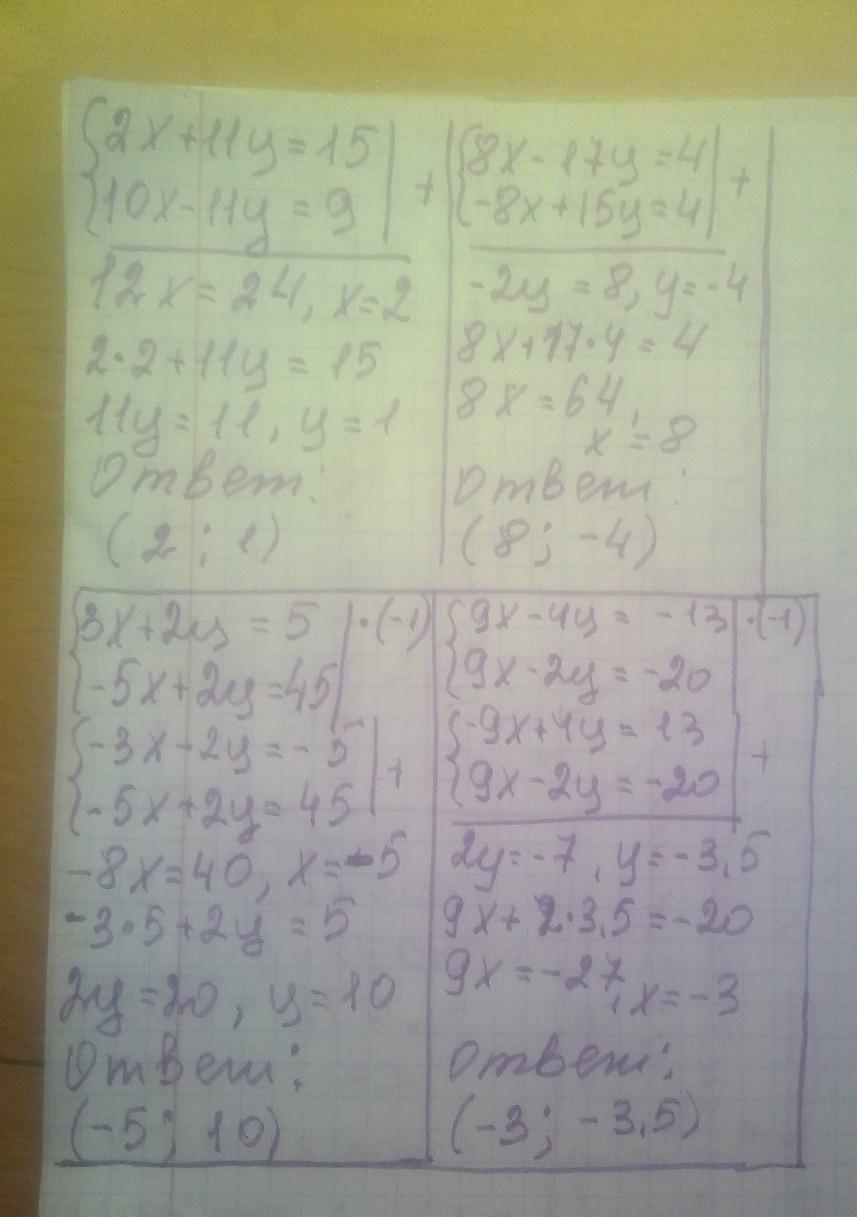 {2x+11y=15| +
{10x-11y=9|
12x=24, x=2
2·2+11y=15
11y=11, y=1
Ответ:
(2; 1)
{8x-17y=4| +
{-8x+15y=4|
-2y=8, y=-4
8x+17·4=4
8x=64,
x=8
Ответ:
(8; -4)
{3x+2y=5|·(-1)
{-5x+2y=45|
{-3x-2y=-5| +
{-5x+2y=45|
-8x=40, x=-5
-3·5+2y=5
2y=20, y=10
Ответ:
(-5; 10)
{9x-4y=-13|·(-1)
{9x-2y=-20|
{-9x+4y=13| +
{9x-2y=-20|
2y=-7, y=-3,5
9x+2·3,5=-20
9x=-27, x=-3
Ответ:
(-3; -3,5)